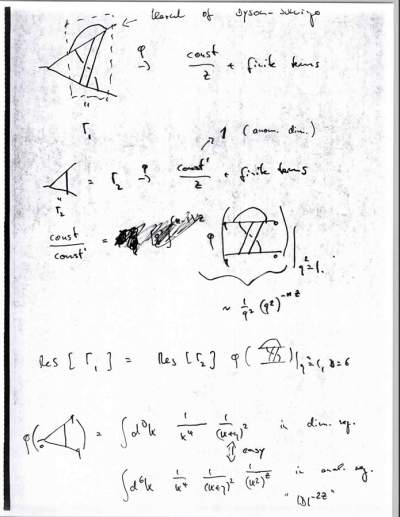 kernel of Dyson-Schwinger
φ → const/z + finite terms
Γ₁
1 (anom. dim.)
= Γ₂ φ → const'/z + finite terms
Γ₂
const/const' = φ( ) |q²=1.
~ 1/q² (q²)^-nz
Res [Γ₁] = Res [Γ₂] φ( )|q²=1, D=6
φ( ) = ∫d^Dk 1/k⁴ 1/(k+q)² in dim. reg.
easy
∫d⁶k 1/k⁴ 1/(k+q)² 1/(k²)^z in anal. reg.